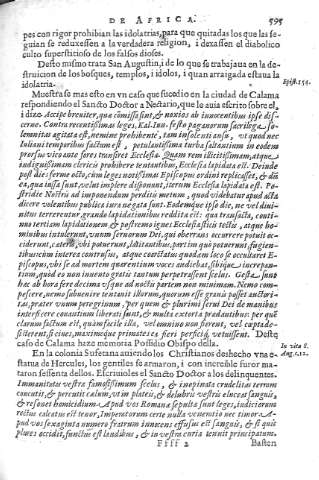 DE AFRICA. 595
pes con rigor prohibian las idolatrias, para que quitadas los que las se-
guian se reduxessen a la verdadera religion, i dexassen el diabolico
culto supersticioso de los falsos dioses.
Desto mismo trata San Augustin, i de lo que se trabajaua en la de-
struicion de los bosques, templos, i idolos, i quan arraigada estaua la
idolatria.
Muestrase mas esto en vn caso que sucedio en la ciudad de Calama
respondiendo el Sancto Doctor a Nectario, que le auia escrito sobre el,
i dize. Accipe breuiter, quæ commissa sint, & noxios ab innocentibus ipse dis-
cerne. Contra recentissimas leges, Kal. Iun. festo paganorum sacrilega so-
lemnitas agitata est, nemine prohibente, tam insolenti ausu, vt quod nec
Iuliani temporibus factum est, petulantissima turba saltantium in eodem
prorsus vico ante fores transiret Ecclesiæ. Quam rem illicitissimam, atque
indignissimam clericis prohibere tentantibus, Ecclesia lapidata est. Deinde
post die: ferme octo, cum leges notissimas Episcopus ordini replicasset, & dũ
ea, quæ iussa sunt, velut implere disponunt, iterum Ecclesia lapidata est. Po-
stridie Nostris ad imponendum perditis metum, quod videbatur apud acta
dicere volentibus publica iura negata sunt. Eodemque ipso die, ne vel diui-
nitus terrerentur, grando lapidationibus reddita est: qua transacta, conti-
nuo tertiam lapidationem & postremo ignes Ecclesiasticis tectis, atque ho-
minibus intulerunt, vnum seruorum Dei, qui oberrans occurrere potuit oc-
ciderunt, cæteris vbi potuerunt, latitantibus, partim quà potuerunt fugien-
tibus: cum interea contrusus, atque coarctatus quodam loco se occultaret E-
piscopus, vbi se ad mortem quærentium voces audiebat, sibique increpan-
tium, quod eo non inuento gratis tantum perpetrassent scelus. Gesta sunt
hæc ab hora fere decima vsque ad noctis partem non minimam. Nemo com-
pescere, nemo subuenire tentauit illorum, quorum esse grauis posset auctori-
tas, præter vnum peregrinum, per quem & plurimi serui Dei de manibus
interficere conantium liberati sunt, & multa extorta prædantibus: per quẽ
clarum factum est, quàm facile illa, vel omnino non fierent, vel cœpta de-
sisterent, si ciues, maximeque primates ea fieri perficique vetuissent. Deste
caso de Calama haze memoria Possidio Obispo della.
En la colonia Sufetana auiendo los Christianos deshecho vna e-
statua de Hercules, los gentiles se armaron, i con increible furor ma-
taron sessenta dellos. Escriuioles el Sancto Doctor a los delinquentes.
Immanitatis vestræ famosissimum scelus, & inopinata crudelitas terram
concutit, & percutit cælum, vt in plateis, & delubris vestris eluceat sanguis,
& resonet homicidium. Apud vos Romanæ sepultæ sunt leges, iudiciorum
rectus calcatus est terror, Imperatorum certe nulla veneratio nec timor. A-
pud vos sexaginta numero fratrum innocens effusus est sanguis, & si quis
plures occidit, functus est laudibus, & in vestra curia tenuit principatum.
Ffff 2 Baston
Epist. 154.
In vita S.
Aug. c. 12.